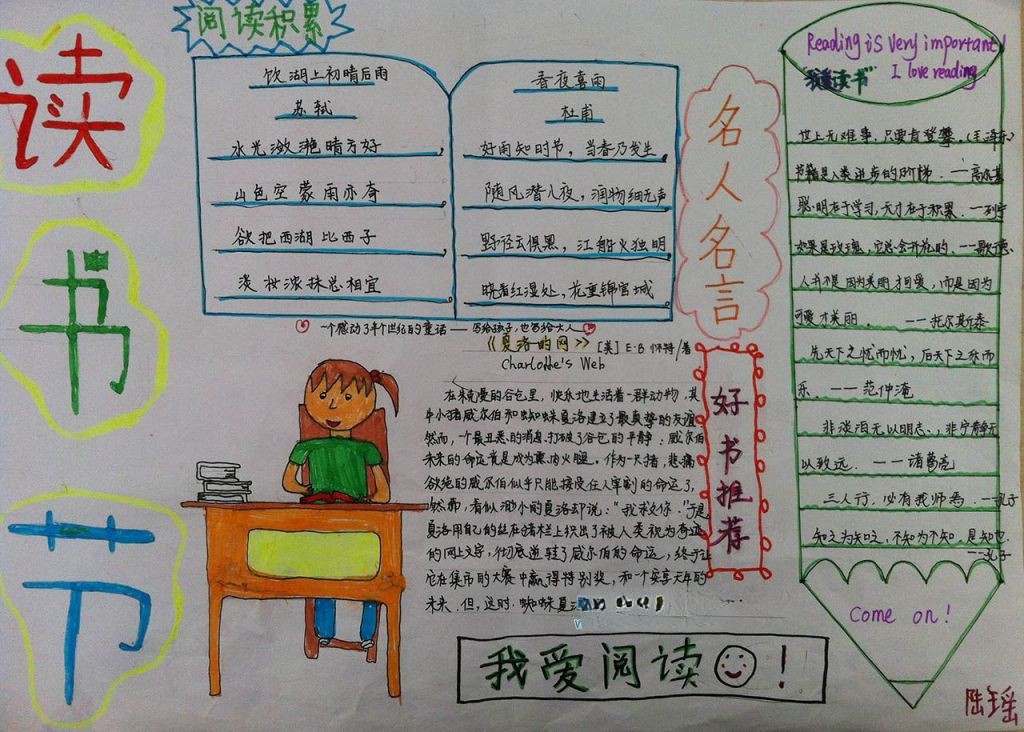 读书节
阅读积累
饮湖上初晴后雨
苏轼
水光潋滟晴方好，
山色空蒙雨亦奇
欲把西湖比西子，
淡妆浓抹总相宜
春夜喜雨
杜甫
好雨知时节，当春乃发生
随风潜入夜，润物细无声
野径云俱黑，江船火独明
晓看红湿处，花重锦官城
名人名言
Reading is very important!
"我爱读书" I love reading
世上无难事，只要肯登攀。(毛泽东)
书籍是人类进步的阶梯．——高尔基
聪明在于学习，天才在于积累．——列宁
如果是玫瑰，它总会开花的．——歌德
人不是因为美丽才可爱，而是因为
可爱才美丽．——托尔斯泰
先天下之忧而忧，后天下之乐而
乐．——范仲淹
非淡泊无以明志，非宁静无
以致远．——诸葛亮
三人行，必有我师焉．——孔子
知之为知之，不知为不知，是知也．
——孔子
Come on!
一个感动了半个世纪的童话——写给孩子，也写给大人
《夏洛的网》[美] E·B 怀特/著
Charlotte's Web
在朱克曼的谷仓里，快乐地生活着一群动物，其
中小猪威尔伯和蜘蛛夏洛建立了最真挚的友谊
然而，一个最丑恶的消息打破了谷仓的平静：威尔伯
未来的命运竟是成为熏肉火腿。作为一只猪，悲痛
欲绝的威尔伯似乎只能接受任人宰割的命运了，
然而，看似渺小的夏洛却说："我救你．"于是
夏洛用自己的丝在猪栏上织出了被人类视为奇迹
的网上文字，彻底逆转了威尔伯的命运，终于让
它在集市的大赛中赢得特别奖，和一个安享天年的
未来．但，这时，蜘蛛夏洛
好书推荐
我爱阅读！
陆瑶